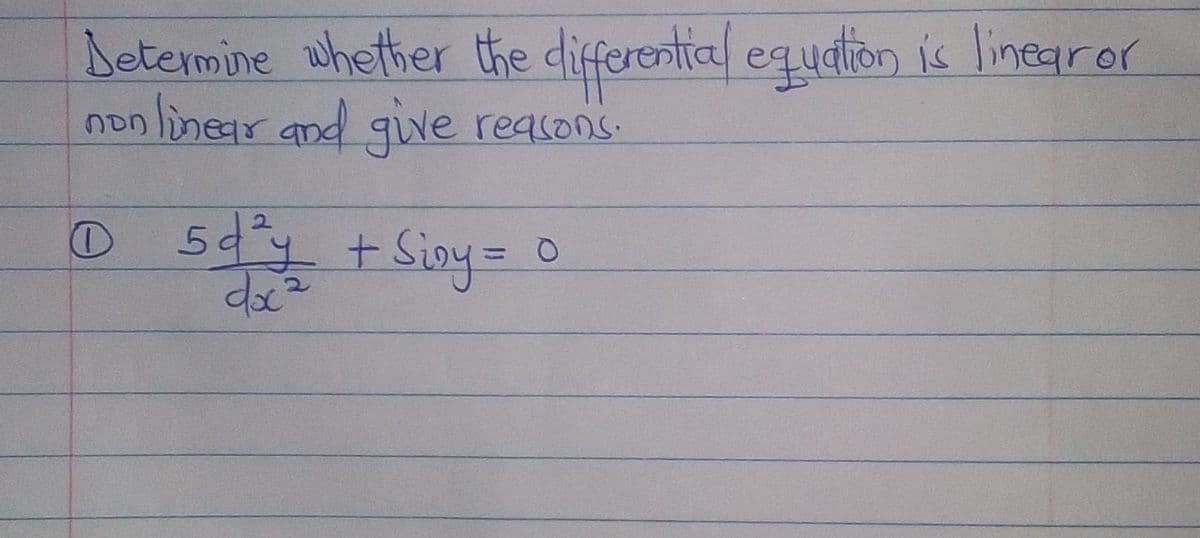 Determine whether the differential equation is linear or
nonlinear and give reasons.
① 5d²y + Siny = 0
dx²